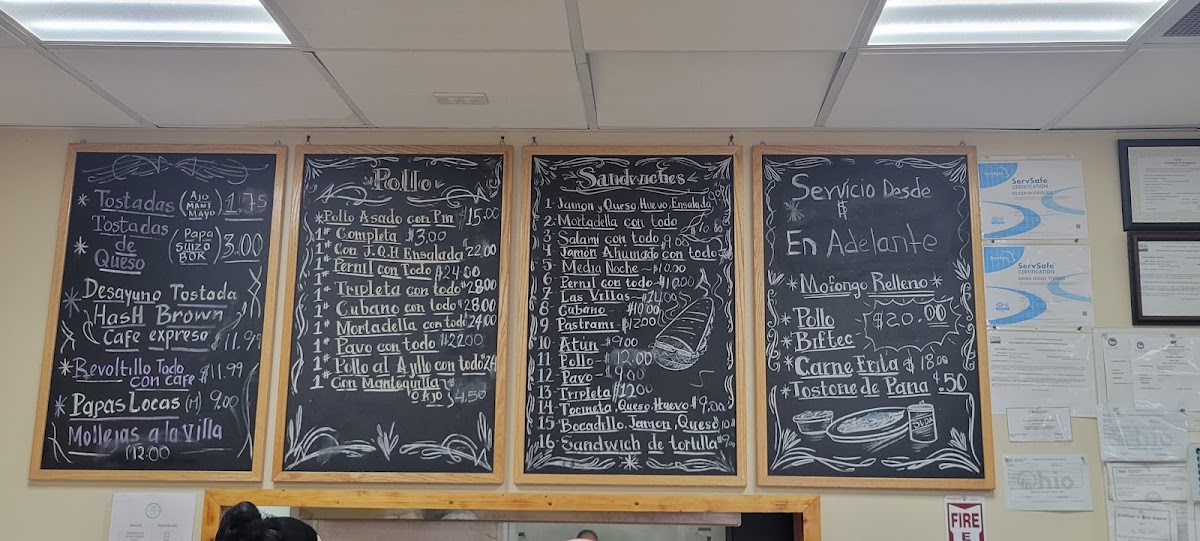 Tostadas (Ajo Mant Mayo) 1.75
Tostadas de Queso (Papa Suizo BOK) 3.00
Desayuno Tostada
Hash Brown
Cafe expreso $11.99
Revoltillo Todo
con cafe $11.99
Papas Locas (M) 9.00
Mollejas a la Villa
12.00
Pollo
Pollo Asado con Pm $15.00
1# Completa $3.00
1# Con J.Q.H Ensalada $22.00
1# Pernil con Todo $24.00
1# Tripleta con todo $28.00
1# Cubano con todo $28.00
1# Mortadella con todo $24.00
1# Pavo con todo $22.00
1# Pollo al Ajllo con todo $24
1# Con Mantequilla
o Ajo $4.50
Sandwiches
1 Jamon y Queso, Huevo, Ensalada
2 Mortadella con todo $10.00
3 Salami con todo 9.00
4 Jamon Ahumado con todo
5 Media Noche - $10.00
6 Pernil con todo $10.00
7 Las Villas - $14.00
8 Cubano - $10.00
9 Pastrami - $12.00
10 Atún - $9.00
11 Pollo - 12.00
12 Pavo - 9.00
13 Tripleta $12.00
14 Tocineta, Queso, Huevo $9.00
15 Bocadillo, Jamon, Queso
16 Sandwich de tortilla
Servicio Desde
$
En Adelante
Mofongo Relleno
Pollo $20.00
Biftec
Carne Frita $18.00
Tostone de Pana $.50
SODA
ServSafe
CERTIFICATION
ServSafe
CERTIFICATION
Ohio
FIRE
E